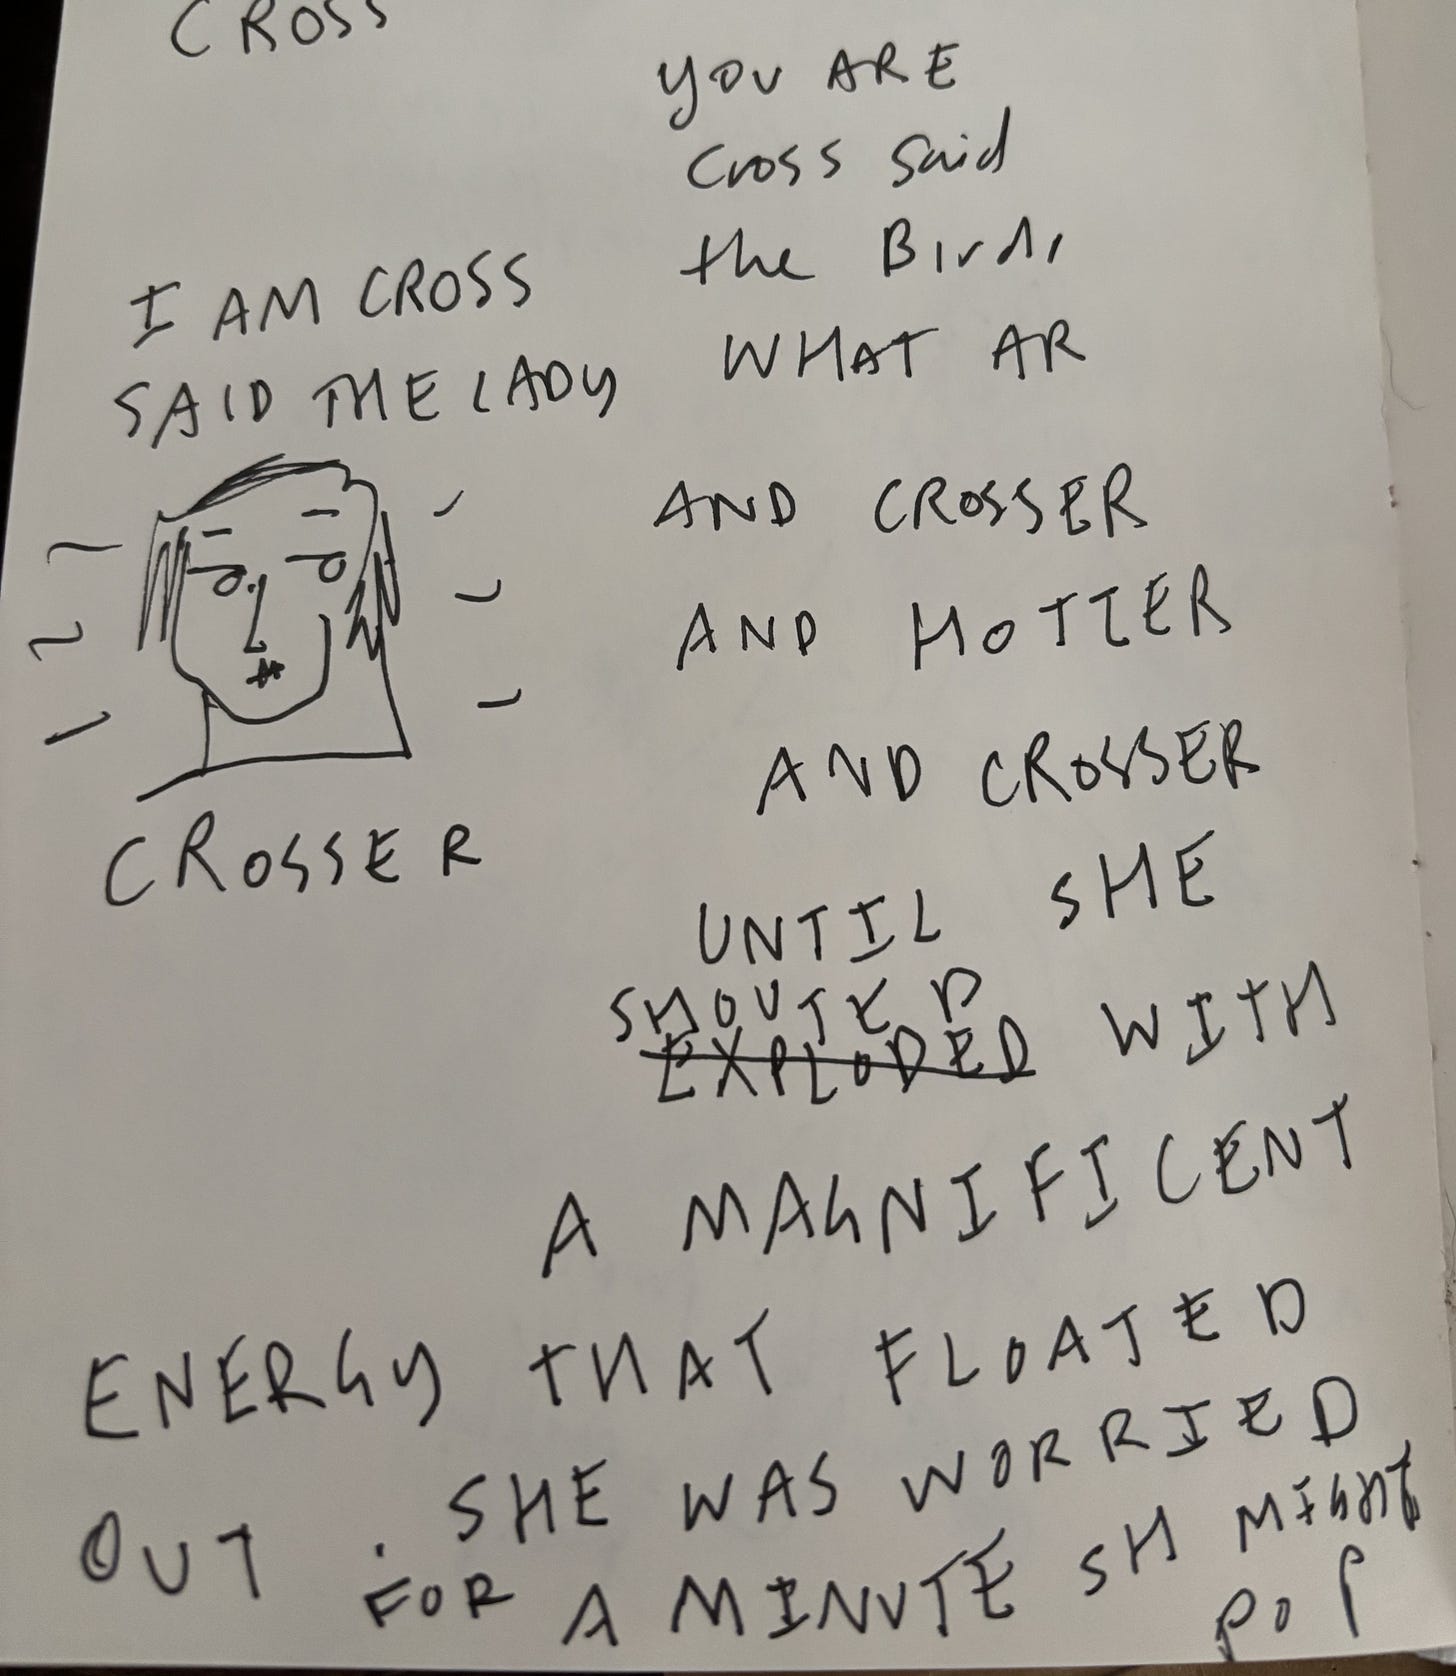 CROSS
I AM CROSS
SAID THE LADY
CROSSER
YOU ARE
Cross Said
the Bird,
WHAT AR
AND CROSSER
AND HOTTER
AND CROSSER
UNTIL SHE
SHOUTED
EXPLODED WITH
A MAGNIFICENT
ENERGY THAT FLOATED
OUT . SHE WAS WORRIED
FOR A MINUTE SH MIGHT
POP